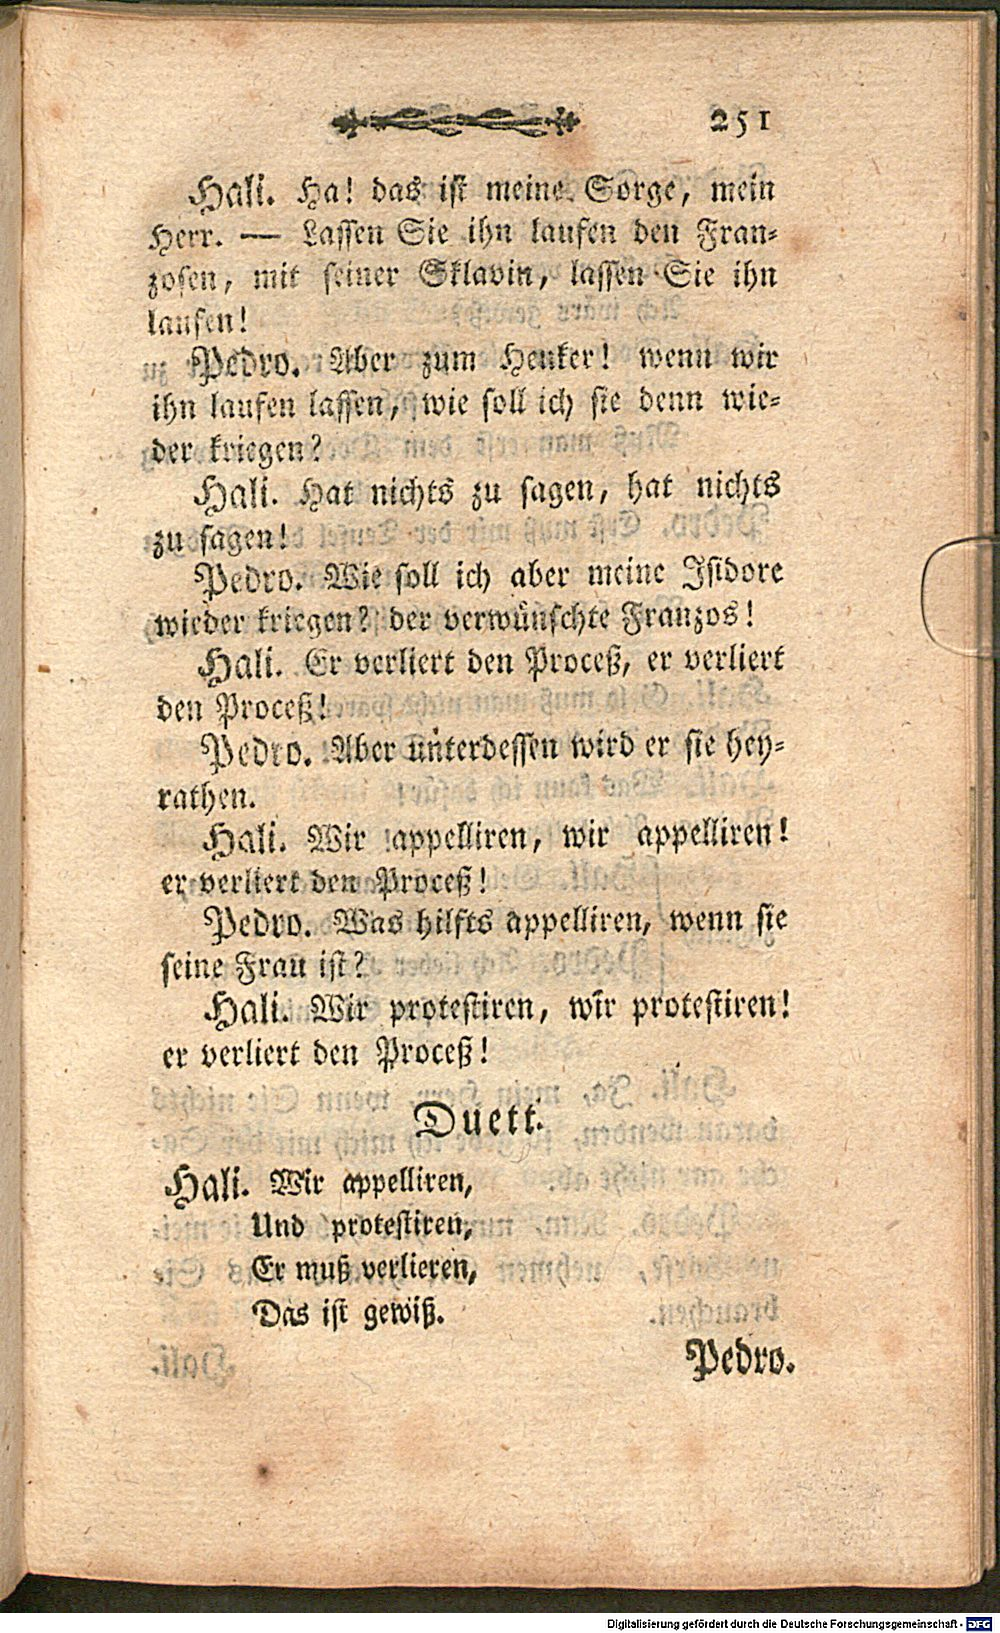 251
Hali. Ha! das ist meine Sorge, mein
Herr. — Lassen Sie ihn laufen den Fran-
zosen, mit seiner Sklavin, lassen Sie ihn
laufen!
Pedro. Aber zum Henker! wenn wir
ihn laufen lassen, wie soll ich sie denn wie-
der kriegen?
Hali. Hat nichts zu sagen, hat nichts
zu sagen!
Pedro. Wie soll ich aber meine Isidore
wieder kriegen? der verwünschte Franzos!
Hali. Er verliert den Proceß, er verliert
den Proceß!
Pedro. Aber unterdessen wird er sie hey-
rathen.
Hali. Wir appelliren, wir appelliren!
er verliert den Proceß!
Pedro. Was hilfts appelliren, wenn sie
seine Frau ist?
Hali. Wir protestiren, wir protestiren!
er verliert den Proceß!
Duett.
Hali. Wir appelliren,
Und protestiren,
Er muß verlieren,
Das ist gewiß.
Pedro.
Digitalisierung gefördert durch die Deutsche Forschungsgemeinschaft - DFG